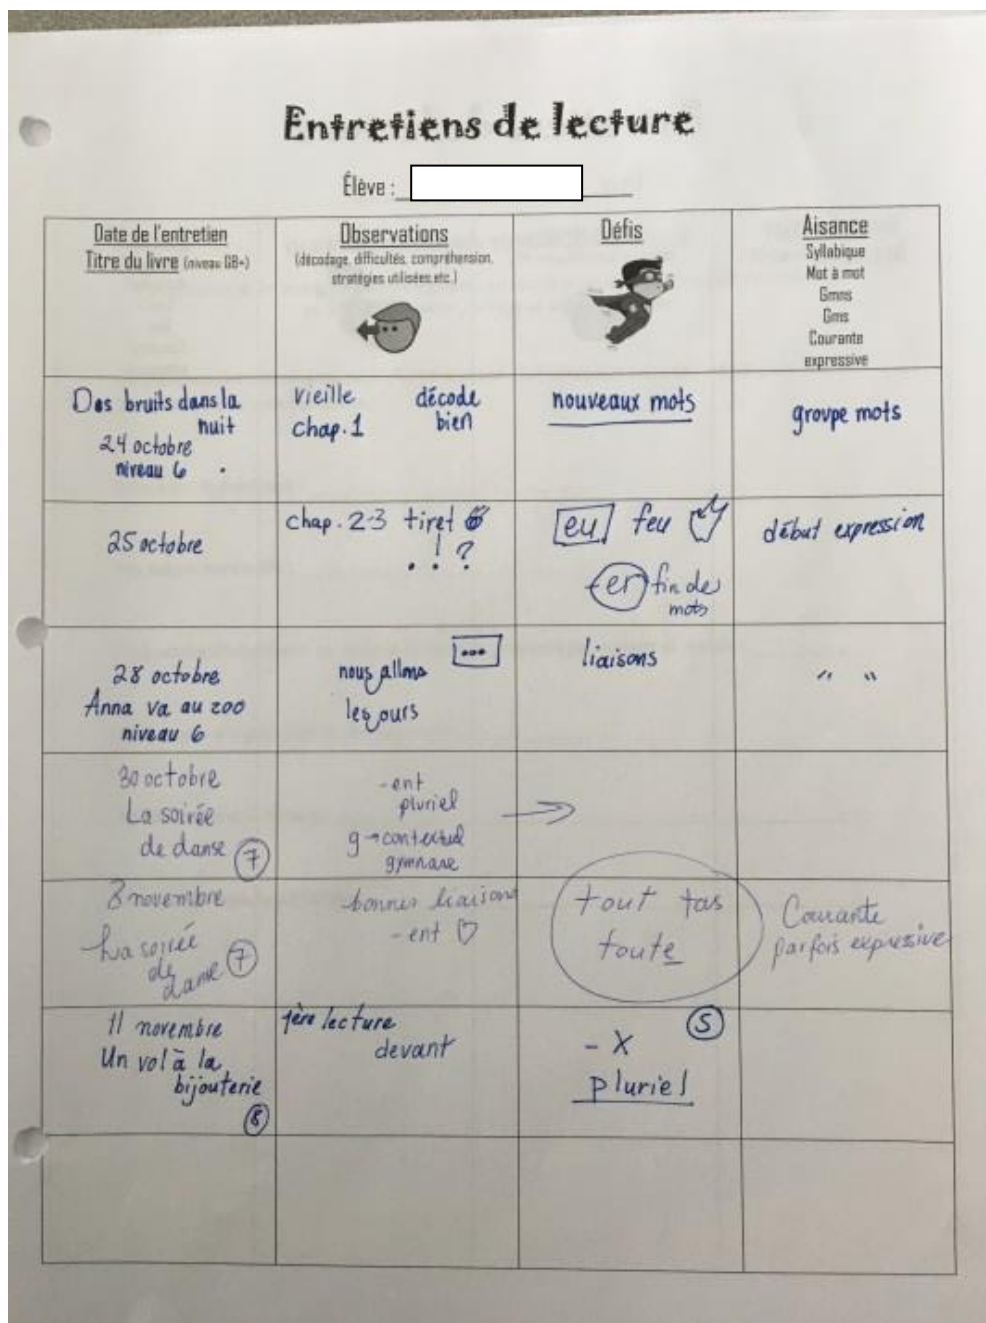 Entretiens de lecture
Élève :
Date de l'entretien
Titre du livre (niveau GB+)
Observations
(décodage, difficultés, compréhension,
stratégies utilisées, etc.)
Défis
Aisance
Syllabique
Mot à mot
Gmns
Gms
Courante
expressive
Des bruits dans la
nuit
24 octobre
niveau 6
vieille
chap. 1
décode
bien
nouveaux mots
groupe mots
25 octobre
chap. 2-3 tiret
. ! ?
eu feu
-er fin de
mots
début expression
28 octobre
Anna va au zoo
niveau 6
...
nous allons
les ours
liaisons
" "
30 octobre
La soirée
de danse 7
-ent
pluriel
g → contextuel
gymnase
8 novembre
La soirée
de danse 7
bonnes liaisons
-ent ♡
tout tas
toute
Courante
parfois expressive
11 novembre
Un vol à la
bijouterie
8
1ère lecture
devant
S
- X
pluriel